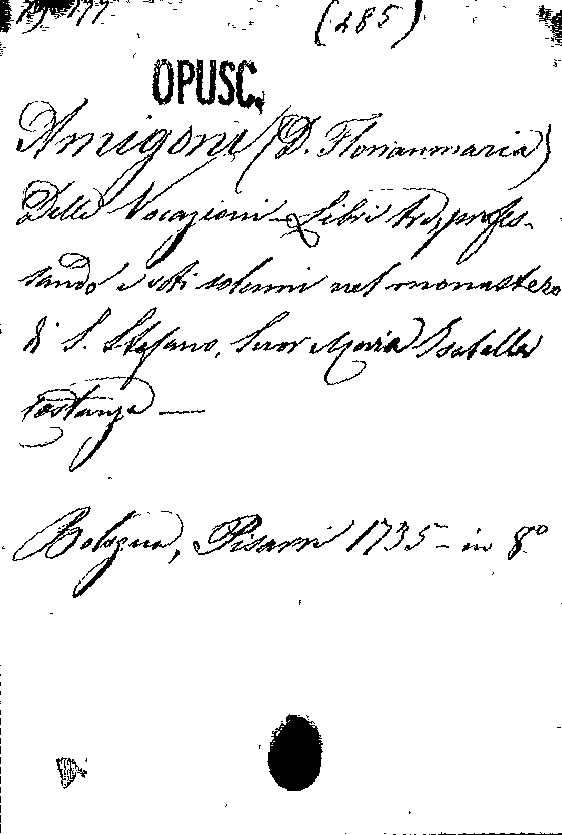 (285)
OPUSC.
Amigoni (D. Florianmaria)
Delle Vocazioni - Libri tre, profes-
sando i voti solenni nel monastero
di S. Stefano, Suor Maria Isabella
Costanza —
Bologna, Pisarri 1735 - in 8º